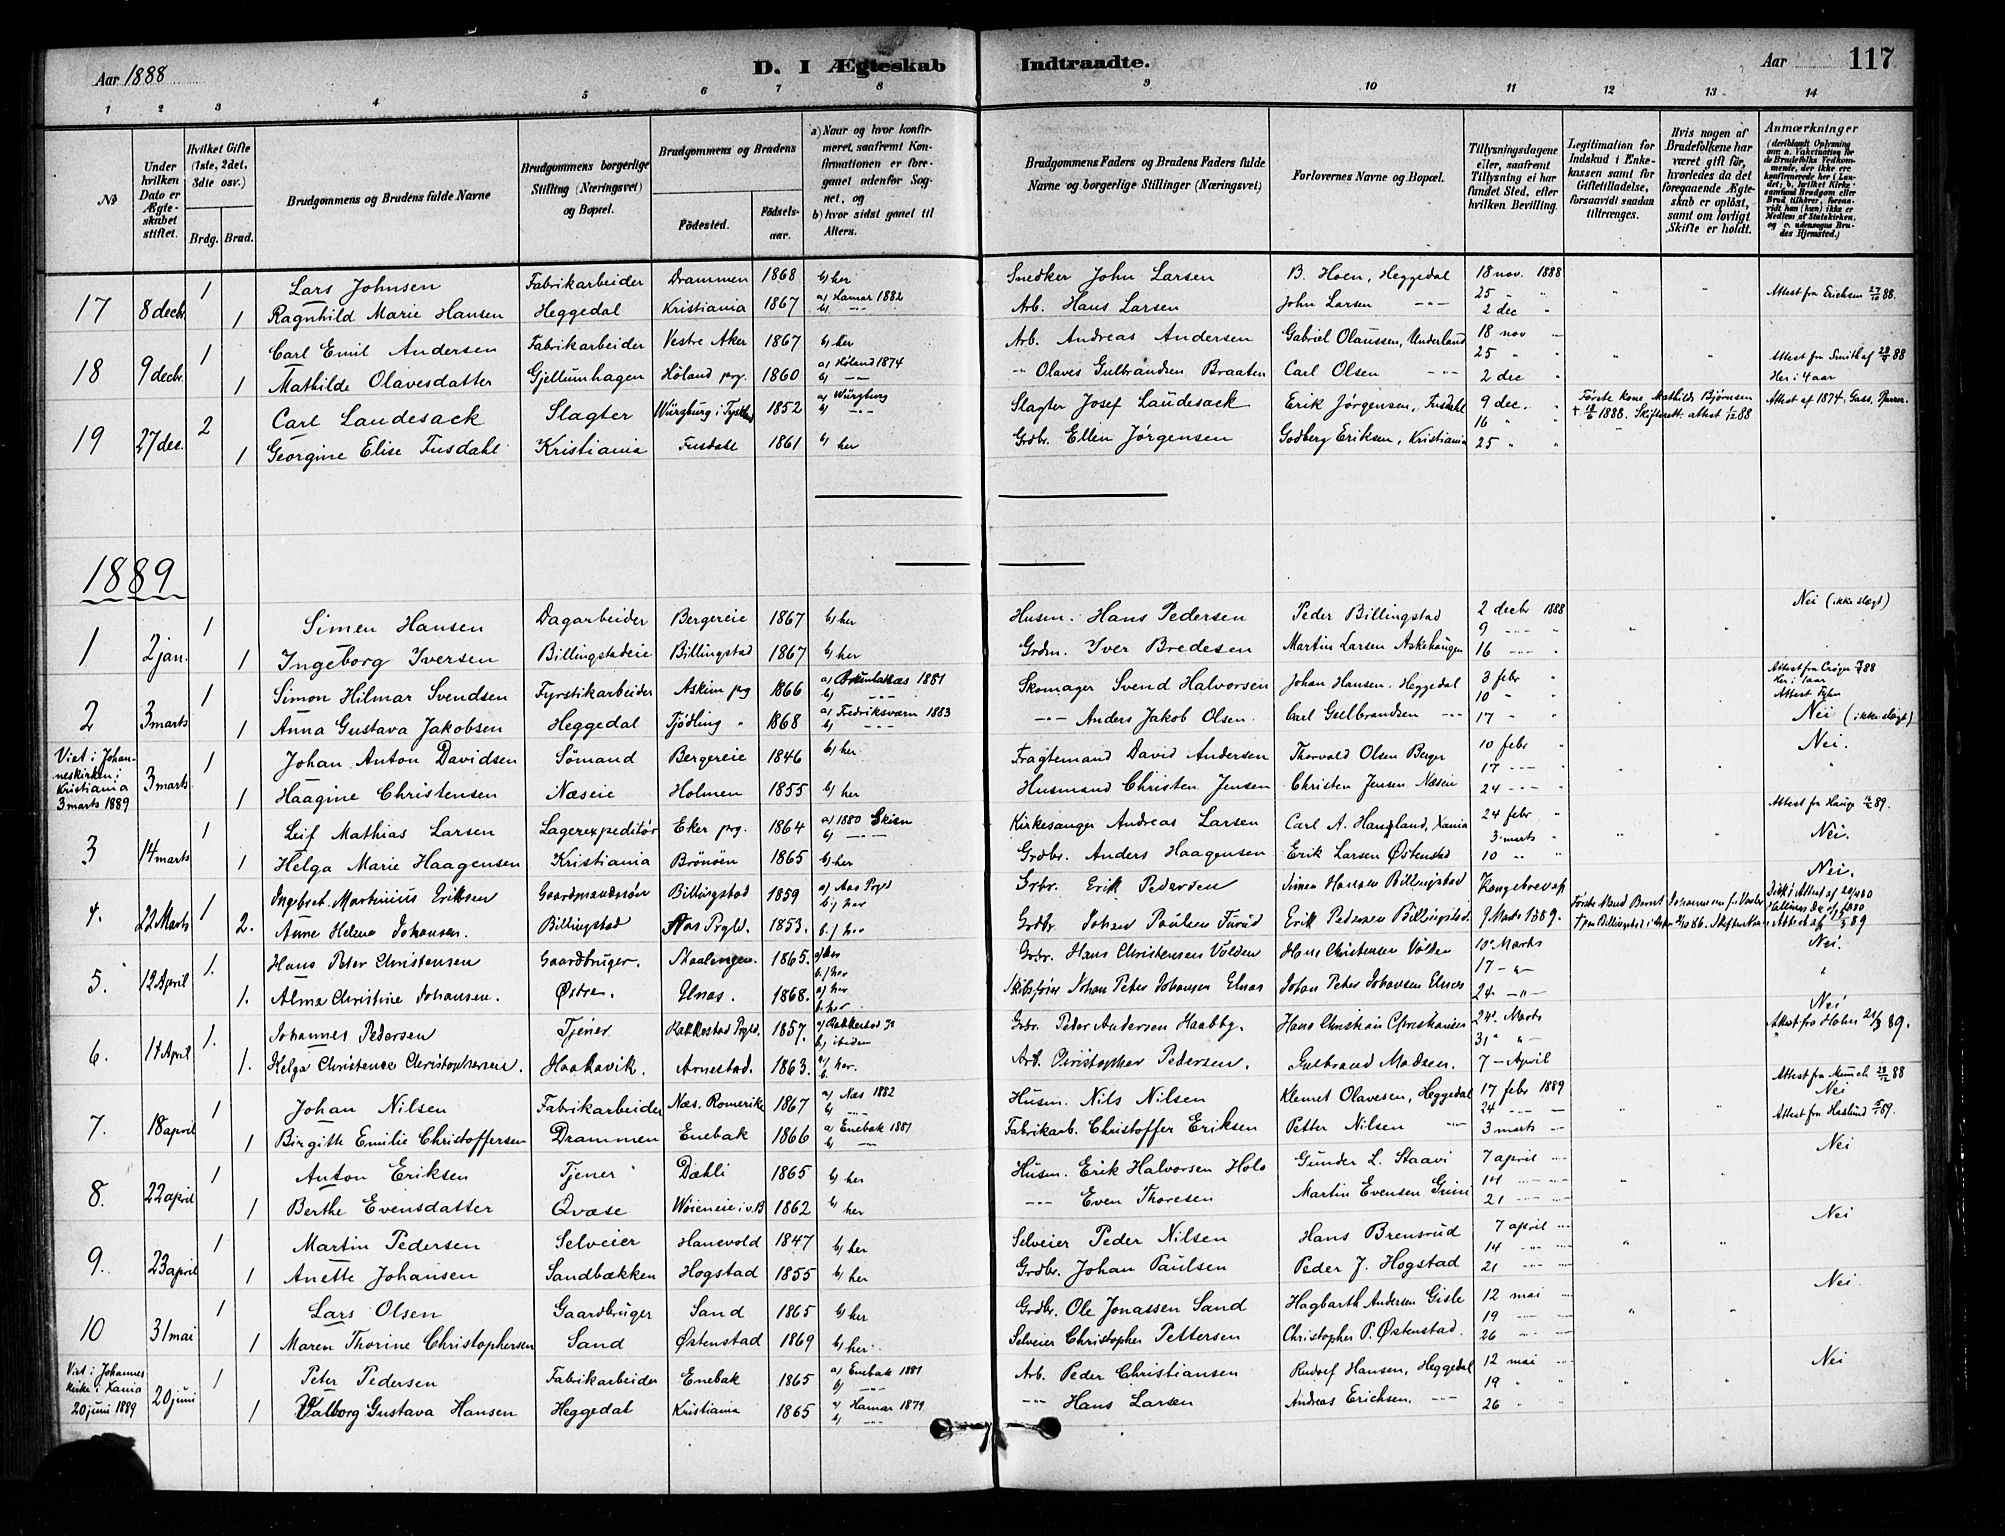 Aar 1888
D. I Ægteskab Indtraadte.
Aar
117
1 2 3 4 5 6 7 8 9 10 11 12 13 14
No
Under hvilken Dato er Ægteskabet stiftet.
Hvilket Gifte (1ste, 2det, 3die osv.)
Brdg. Brud.
Brudgommens og Brudens fulde Navne
Brudgommens borgerlige Stilling (Næringsvei) og Bopæl.
Brudgommens og Brudens
Fødested.
Fødselsaar.
a) Naar og hvor konfirmeret, saafremt Konfirmationen er foregaaet udenfor Sognet, og
b) hvor sidst gaaet til Alters.
Brudgommens Faders og Brudens Faders fulde Navne og borgerlige Stillinger (Næringsvei)
Forlovernes Navne og Bopæl.
Tillysningsdagene eller, saafremt Tillysning ei har fundet Sted, efter hvilken Bevilling.
Legitimation for Indskud i Enkekassen samt for Giftetilladelse, forsaavidt saadan tiltrænges.
Hvis nogen af Brudefolkene har været gift før, hvorledes da det foregaaende Ægteskab er opløst, samt om lovligt Skifte er holdt.
Anmærkninger (deriblandt Oplysning om: a. Vakcination for de Brudefolks Vedkommende, der ikke ere konfirmerede her i Landet; b. hvilket Kirkesamfund Brudgom eller Brud tilhører, forsaavidt han (hun) ikke er Medlem af Statskirken, og c. udensogns Brudes Hjemsted.)
17 8 decbr. 1 Lars Johnsen Fabrikarbeider Drammen 1868 b) her Snedker John Larsen B. Hoen, Heggedal 18 nov. 1888
1 Ragnhild Marie Hansen Heggedal Kristiania 1867 a) Hamar 1882 b) — Arb. Hans Larsen John Larsen — 25 " 2 dec " Attest fra Erichsen 27/10 88.
18 9 decbr. 1 Carl Emil Andersen Fabrikarbeider Vestre Aker 1867 b) her Arb. Andreas Andersen Gabriel Olaussen, Underlund 18 nov
1 Mathilde Olavesdatter Gjellumhagen Høland prg. 1860 a) Høland 1874 b) — " Olaves Gulbrandsen Braaten Carl Olsen — 25 " 2 dec " Attest fra Smith af 88 Her i 4 aar
19 27 dec. 2 Carl Laudesack Slagter Würzburg i Tyskl 1852 a) Würzburg b) — Slagter Josef Laudesack Erik Jørgensen, Fusdahl 9 dec. Første kone Mathilde Bjørnsen † 1888. Skifterett. attest 1/12 88 Attest af 1874.
1 Georgine Elise Fusdahl Kristiania Fusdahl 1861 b) her Grdbr. Ellen Jørgensen Godberg Eriksen, Kristiania 16 " 25 "
1889
1 2 jan. 1 Simen Hansen Dagarbeider Bergereie 1867 b) her Husm. Hans Pedersen Peder Billingstad 2 decbr 1888 Nei (ikke slægt)
1 Ingeborg Iversen Billingstadeie Billingstad 1867 b) her Grdm. Iver Bredesen Martin Larsen Askehaugen 9 — 16 —
2 3 marts 1 Simon Hilmar Svendsen Fyrstikarbeider Askim prg 1866 a) 1881 b) — Skomager Svend Halvorsen Johan Hansen, Heggedal 3 febr Attest fra 88 Her i 1 aar
1 Anna Gustava Jakobsen Heggedal Tjødling " 1868 a) Fredriksværn 1883 b) — — Anders Jakob Olsen Carl Gulbrandsen — 10 " 17 " Attest Nei (ikke slægt)
Viet i Johanneskirken i Kristiania 3 marts 1889 3 marts 1 Johan Anton Davidsen Sømand Bergereie 1846 b) her Fragtemand David Andersen Thorvald Olsen Berger 10 febr Nei.
1 Haagine Christensen Næseie Holmen 1855 b) her Husmand Christen Jensen Christen Jensen Næseie 17 — 24 —
3 14 marts 1 Leif Mathias Larsen Lagerexpeditør Eker prg. 1864 a) 1880 Skien b) — Kirkesanger Andreas Larsen Carl A. Haugland, Xania 24 febr Attest fra Hauge 89.
1 Helga Marie Haagensen Kristiania Brønøen 1865 b) her Grdbr. Anders Haagensen Erik Larsen Østenstad 3 marts 10 " Nei.
4. 22 Marts 1 Ingebret Martinius Eriksen Gaardmandssøn Billingstad 1859 a) Aas Prgld b) her Grbr. Erik Pedersen Simen Hansen Billingstad Kongebrev af Nei.
2. Anne Helene Johansen. Billingstad Aas Prgld. 1853. b.) her Grdbr. Johan Paulsen Furud Erik Pedersen Billingstad. 9 Marts 1889. Første Mand Bernt Johannesen
5. 12 April 1. Hans Peter Christensen Gaardbruger. 1865. a) her b.) her Grbr. Hans Christensen Volden Hans Christensen Volden 10 Marts Nei.
1. Alma Christine Johansen. Østre. Elnæs. 1868. a) her b. her Skibsfører Johan Peter Johansen Elnæs Johan Peter Johansen Elnæs 17 — 24 — "
6. 14 April 1. Johannes Pedersen Tjener Rakkestad Prgld. 1857. a) Rakkestad b) Grbr. Peder Andersen Haabby. Hans Christian Christiansen 24 Marts Nei Attest fra Holm 89.
1. Helga Christence Christophersen. Haakavik. Arnestad. 1863. a) b. her. Arb. Christopher Pedersen. Gulbrand Madsen. 31 " 7 — April
7. 18 april 1 Johan Nilsen Fabrikarbeider Næs, Romerike 1867 a) Næs 1882 b) — Husm. Nils Nilsen Klemet Olavesen, Heggedal 17 febr 1889 Attest fra Munch 88 Nei
1 Birgitte Emilie Christoffersen Drammen Enebak 1866 a) Enebak 1881 b) — Fabrikarb. Christoffer Eriksen Petter Nilsen — 24 — 3 marts Attest fra Haslund 89.
8. 22 april 1 Anton Eriksen Tjener Dæhli 1865 b) her Husm. Erik Halvorsen Holo Gunder L. Staavi 7 april Nei
1 Berthe Evensdatter Qvase Wøieneie i v.B 1862 b) her — Even Thoresen Martin Evensen Grini 14 — 21 —
9. 23 april 1 Martin Pedersen Selveier Hanevold 1847 b) her Selveier Peder Nilsen Hans Brensrud 7 april Nei
1 Anette Johansen Sandbækken Hogstad 1855 b) her Grdbr. Johan Paulsen Peder J. Hogstad 14 — 21 —
10 31 mai 1 Lars Olsen Gaardbruger Sand 1865 b) her Grdbr. Ole Jonassen Sand Hagbarth Andersen Gisle 12 mai Nei
1 Maren Thorine Christophersen Sand Østenstad 1869 b) her. Selveier Christopher Pettersen Christopher P. Østenstad. 19 — 26 "
Viet i Johannes Kirke i Xania 20 juni 1889 20 juni 1 Peter Pedersen Fabrikarbeider Enebak 1865 a) Enebak 1881 b) — Arb. Peder Christiansen Rudolf Hansen, Heggedal 12 mai Nei
1 Valborg Gustava Hansen Heggedal Kristiania 1865 a) Hamar 1879 b) — — Hans Larsen Andreas Erichsen. — 19 " 26 "